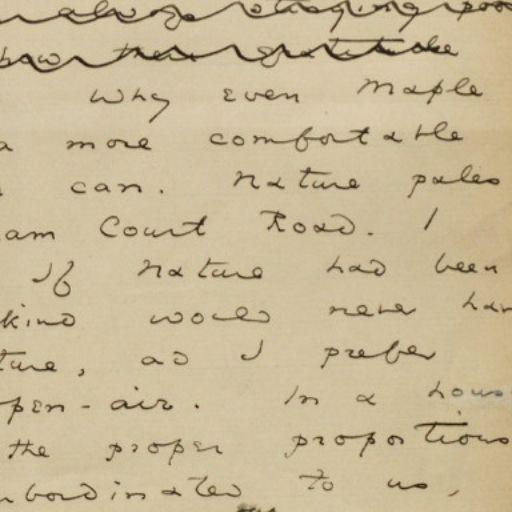 always staging poo
how their gratitude
Why even Maple
a more comfortable
can. Nature pales
am Court Road. I
If Nature had been
kind would never hav
ture, and I prefer
pen-air. In a hous
the proper proportions
ubordinated to us,